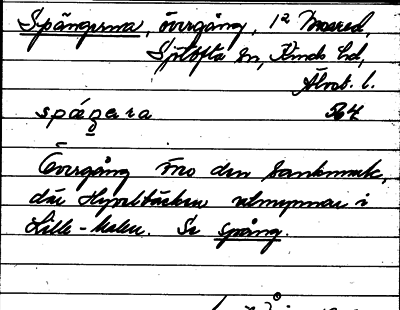 Spångerna, övergång, 1² Mared,
Sjötofta sn, Kinds hd,
Älvsb. l.
spáŋara 564
Övergång från den sankmark,
där Hyvelbäcken utmynnar i
Lille-halen. Se spång.